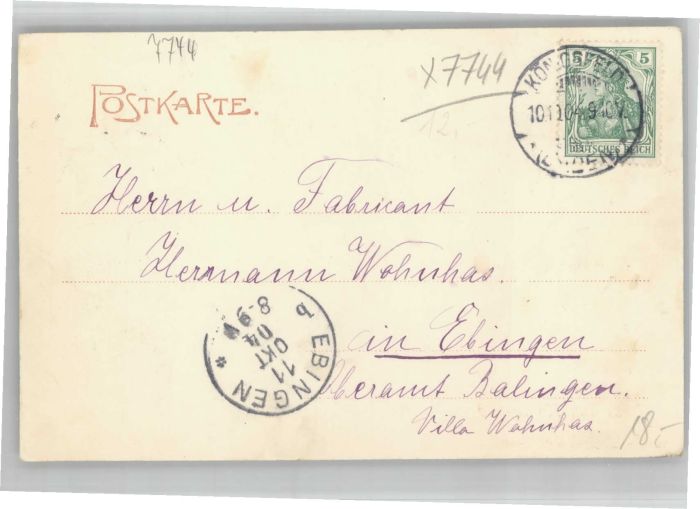 7744
X7744
12.-
POSTKARTE.
KÖNIGSFELD
10.10.04. 9-10V.
(BADEN)
5
DEUTSCHES REICH
Herrn u. Fabricant
Hermann Wohnhas.
in Ebingen
Oberamt Balingen.
Villa Wohnhas.
EBINGEN
b
11
OKT
04
8-9V
18.-